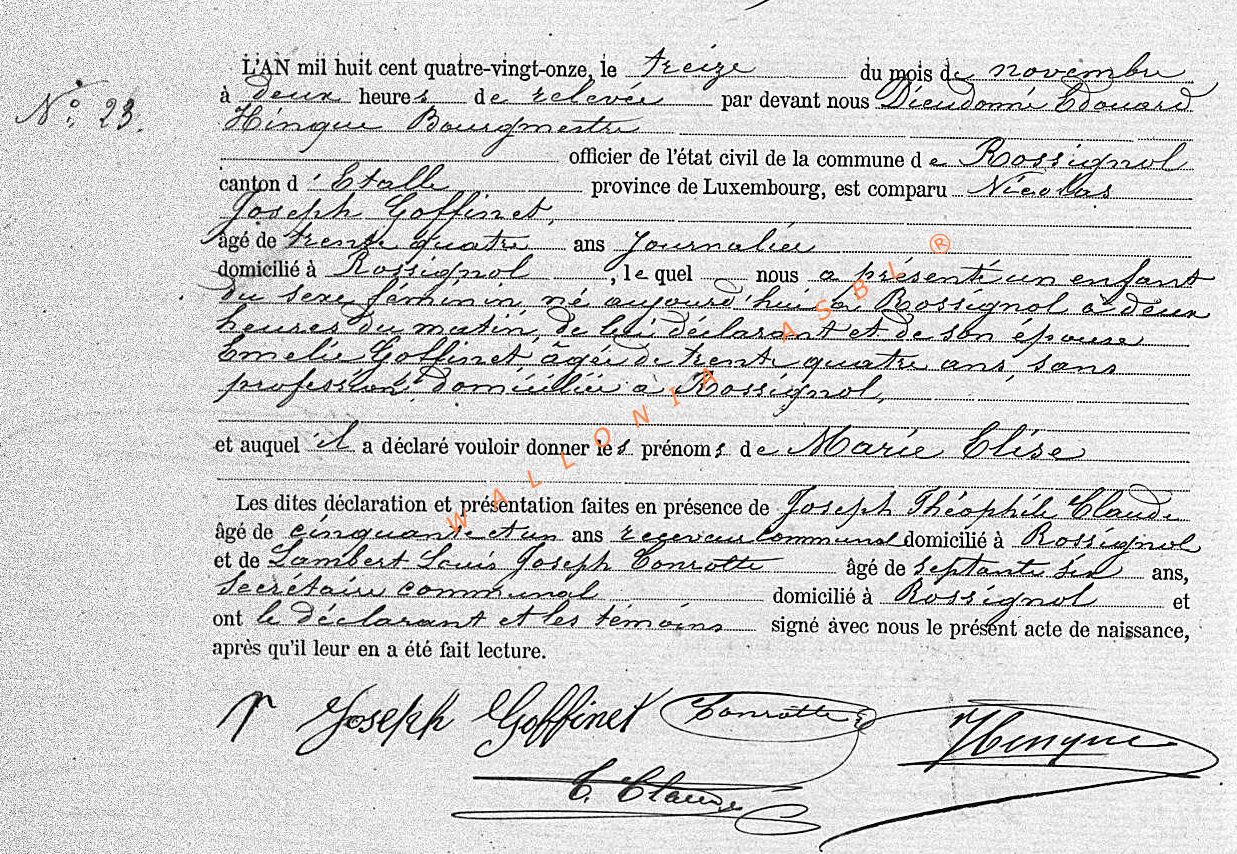 L'AN mil huit cent quatre-vingt-onze, le treize du mois de novembre
No. 23.
à deux heures de relevée par devant nous Dieudonné Edouard
Hinque Bourgmestre
officier de l'état civil de la commune de Rossignol
canton d'Etalle province de Luxembourg, est comparu Nicolas
Joseph Goffinet,
âgé de trente quatre ans Journalier
domicilié à Rossignol, lequel nous a présenté un enfant
du sexe féminin, né aujourd'hui à Rossignol à deux
heures du matin, de lui déclarant et de son épouse
Emelie Goffinet, âgée de trente quatre ans, sans
profession, domiciliée à Rossignol,
et auquel il a déclaré vouloir donner les prénoms de Marie Elise
Les dites déclaration et présentation faites en présence de Joseph Théophile Claude
âgé de cinquante et un ans receveur communal domicilié à Rossignol
et de Lambert Louis Joseph Conrotte âgé de septante six ans,
secrétaire communal domicilié à Rossignol et
ont le déclarant et les témoins signé avec nous le présent acte de naissance,
après qu'il leur en a été fait lecture.
Joseph Goffinet Conrotte Hinque
T. Claude
WALLONIA ASBL ®